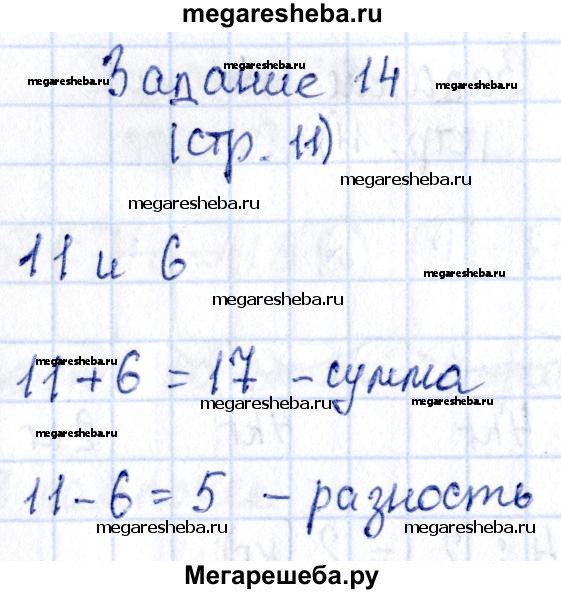 megaresheba.ru
Задание 14
megaresheba.ru megaresheba.ru megaresheba.ru
(стр. 11)
megaresheba.ru
megaresheba.ru
11 и 6
megaresheba.ru
megaresheba.ru
megaresheba.ru
11 + 6 = 17 - сумма
megaresheba.ru megaresheba.ru
megaresheba.ru
11 - 6 = 5 - разность
megaresheba.ru megaresheba.ru
Мегарешеба.ру